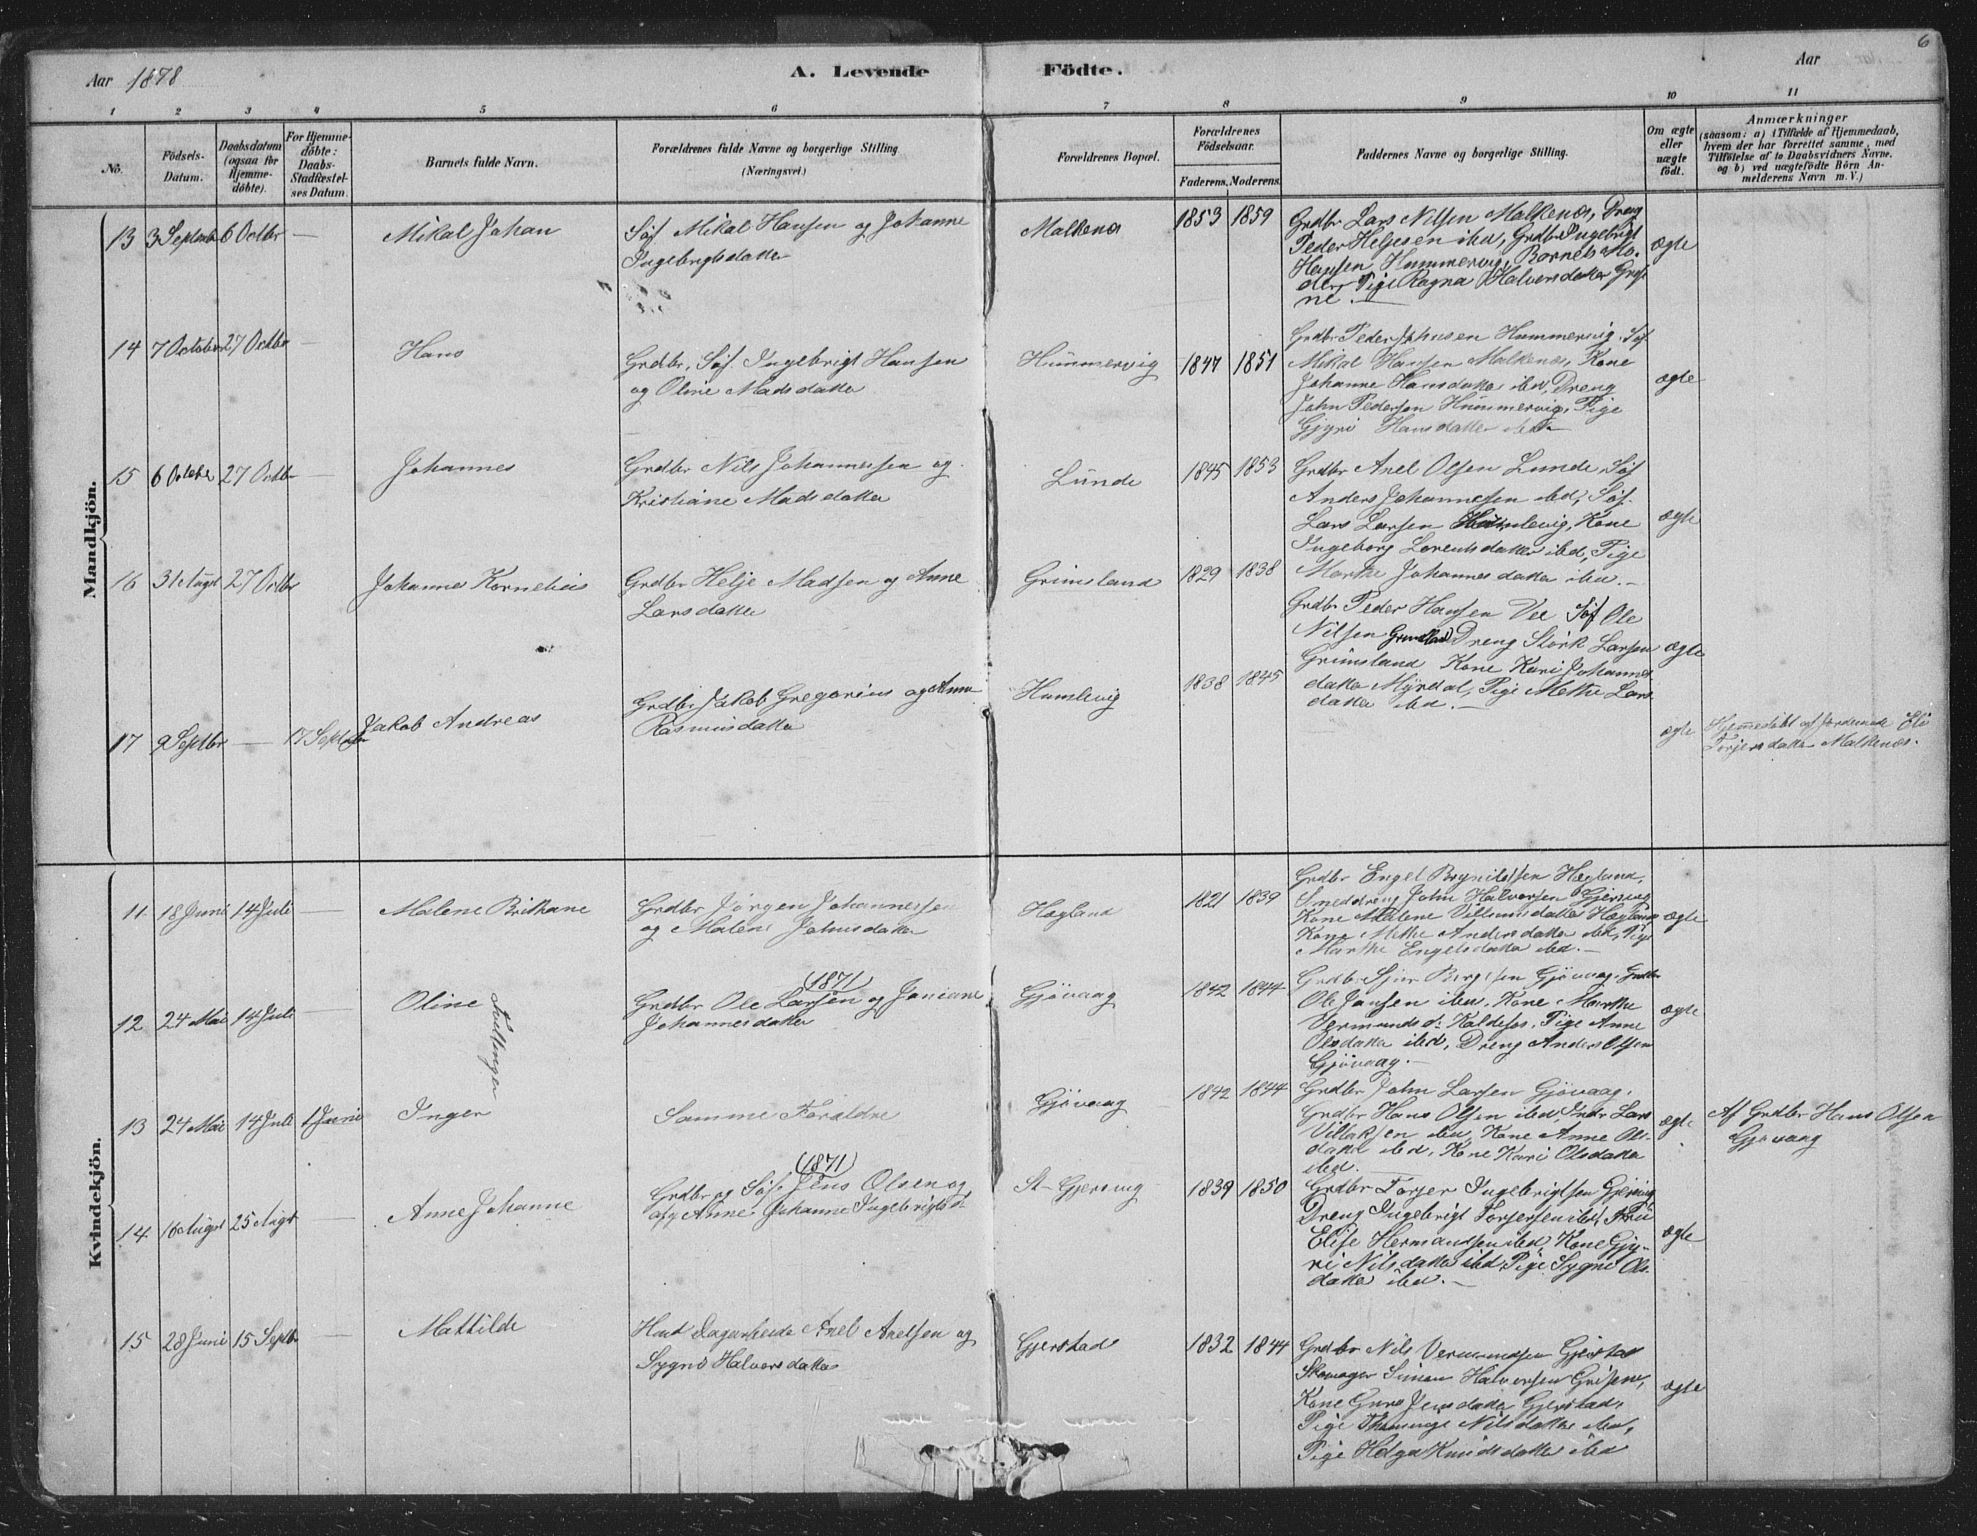 6
Aar 1878 A. Levende Födte. Aar
1 2 3 4 5 6 7 8 9 10 11
No. Födsels-Datum. Daabsdatum (ogsaa for Hjemme-döbte). For Hjemme-döbte: Daabs-Stadfæstel-ses Datum. Barnets fulde Navn. Forældrenes fulde Navne og borgerlige Stilling (Næringsvei.) Forældrenes Bopæl. Forældrenes Födselsaar. Faderens. Moderens. Faddernes Navne og borgerlige Stilling. Om ægte eller uægte födt. Anmærkninger
(saasom: a) i Tilfælde af Hjemmedaab,
hvem der har forrettet samme, med
Tilföielse af to Daabsvidners Navne,
og b) ved uægtefödte Börn An-
melderens Navn m. V.)
Mandkjön.
13 3 Septbr 6 Octbr — Mikal Johan
Søf Mikal Hansen og Johanne
Ingebrigtsdatter
Malkenes 1853 1859
Grdbr Lars Nilsen Malkenes, Dreng
Peder Heljesen ibid, Grdbr Ingebrigt
Hansen Hummervig, Barnets Mo-
der, Pige Ragna Halvorsdatter Grøf
ne. —
ægte
14 7 October 27 Octbr — Hans
Grdbr. Søf. Ingebrigt Hansen
og Oline Madsdatter
Hummervig 1847 1851
Grdbr Peder Johnsen Hummervig, Søf
Mikal Hansen Malkenes, Kone
Johanne Hansdatter ibd, Dreng
John Pedersen Hummervig, Pige
Gjyri Hansdatter ibd
ægte
15 6 Octbr 27 Octbr — Johannes
Grdbr Nils Johannessen og
Kristiane Madsdatter
Lunde 1845 1853
Grdbr Axel Olsen Lunde, Søf
Anders Johannessen ibd, Søf.
Lars Larsen Humlevig, Kone
Ingeborg Lorentsdatter ibd, Pige
Marthe Johannesdatter ibid. —
ægte
16 31 Augst 27 Octbr Johannes Kornelius
Grdbr Helje Madsen og Anne
Larsdatter
Grimsland 1829 1838
Grdbr Peder Hansen Vee Søf Ole
Nilsen Grimsland Dreng Stork Larsen
Grimsland Kone Kari Johannes
datter Myrdal, Pige Mette Lars
datter ibid. —
ægte
17 9 Septbr — 17 Septbr Jakob Andreas
Grdbr Jakob Gregorius og Anne
Rasmusdatter
Humlevig 1838 1845
ægte
Hjemmedøbt af Jordemode Eli
Torjersdatter Malkenes.
Kvindekjön.
11 18 Juni 14 Juli — Malene Brithane
Grdbr Jörgen Johannessen
og Malene Johnsdatter
Hegland 1821 1839
Grdbr Engel Brynildsen Hegland,
Smeddreng John Halvorsen Gjersvig
Kone Malene Villumsdatter Hegland
Kone Mette Andersdatter ibd, Pige
Marthe Engelsdatter ibd. —
ægte
12 24 Mai 14 Juli — Oline Tvillinger
(1871)
Grdbr Ole Larsen og Janiane
Johannesdatter
Gjövaag 1842 1844
Ole Jansen ibid. Kone Marthe
Vermunds d: Kaldefos, Pige Anne
Olsdatter ibid, Dreng Anders Olsen
Gjövaag. —
ægte
13 24 Mai 14 Juli 1 Junie Inger
Samme Foraldre
Gjövaag 1842 1844
Grdbr John Larsen Gjövaag,
Grdbr Hans Olsen ibid, Lars
ibid, Kone Anne Ols-
datter ibid, Kone Kari Olsdatter
ibid.
ægte
Af Grdbr Hans Olsen
Gjövaag
14 16 Augst 25 Augst — Anne Johanne
(1871)
Grdbr og Søf. Jens Olsen og
og Anne Johanne Ingebrigtsd:
St Gjersvig 1839 1850
Grdbr Torjer Ingebrigtsen Gjersvig
Dreng Ingebrigt Torjersen ibd, Fru
Elise Hermandsen ibd, Kone Gjy-
ri Nilsdatter ibd, Pige Sygni Ols-
datter ibd. —
ægte
15 28 Juni 15 Septbr — Mattilde
Axel Axelsen og
Sygni Halvorsdatter
Gjerstad 1832 1844
Grdbr Nils Vermundsen Gjerstad
Simon Halvorsen Grøfne,
Kone Guro Jensdatter Gjerstad,
Pige Nilsdatter ibid,
Pige Helga Knudsdatter ibid
ægte